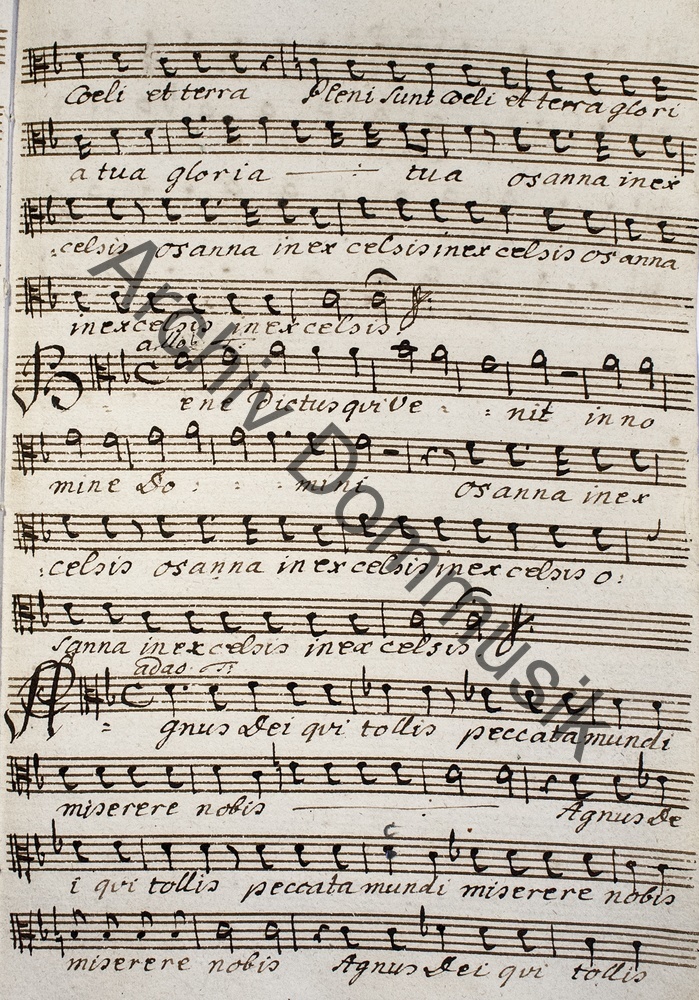 Coeli et terra Pleni sunt Coeli et terra glori
a tua gloria tua osanna in ex
celsis osanna in ex celsis in ex celsis osanna
in excelsis in excelsis.
allo
Bene Dictus qui Ve nit in no
mine Do mini osanna in ex
celsis osanna in ex celsis in ex celsis o:
sanna in excelsis in ex celsis
adao
Agnus Dei qui tollis peccata mundi
miserere nobis Agnus De
c
i qui tollis peccata mundi miserere nobis
miserere nobis Agnus Dei qui tollis
Archiv Dommusik